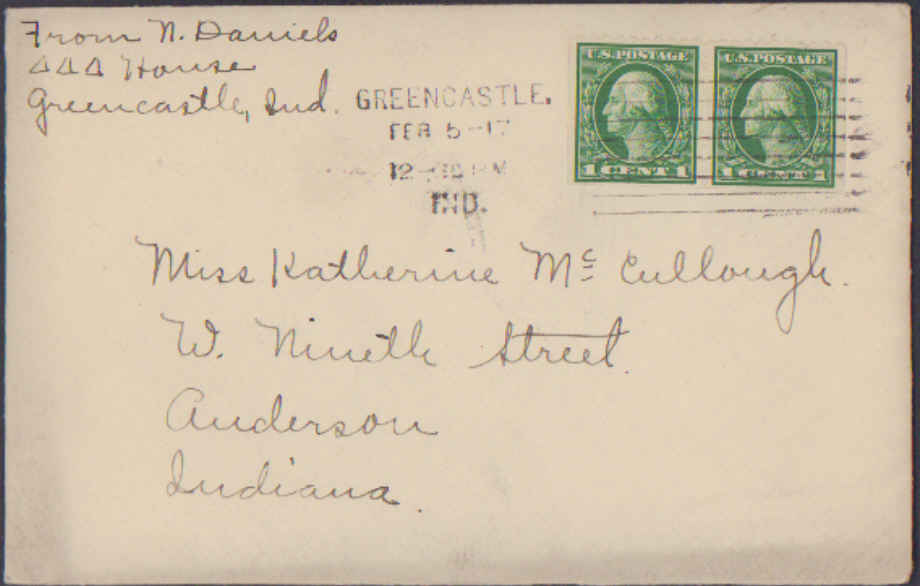 From N. Daniels
ΔΔΔ House
Greencastle, Ind.
GREENCASTLE.
FEB 5-17
12 PM
IND.
U.S. POSTAGE
1 CENT 1
U.S. POSTAGE
1
Miss Katherine McCullough.
W. Nineth Street.
Anderson
Indiana.